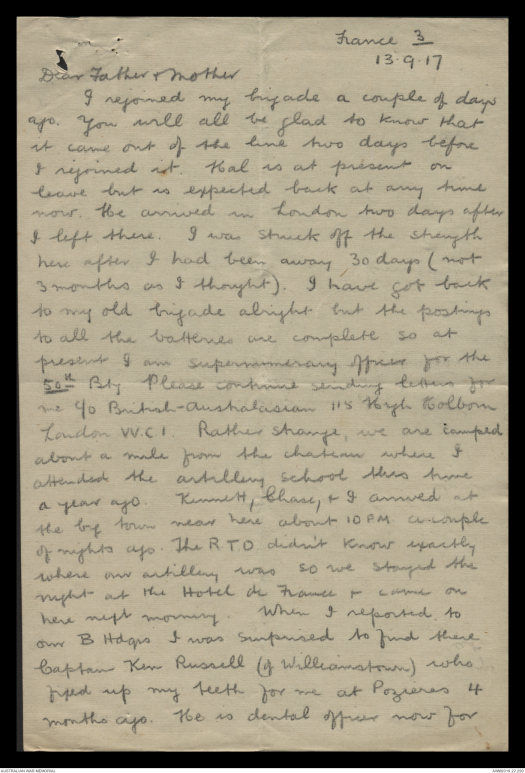 France 3
13.9.17
Dear Father & Mother
I rejoined my brigade a couple of days
ago. You will all be glad to know that
it came out of the line two days before
I rejoined it. Hal is at present on
leave but is expected back at any time
now. He arrived in London two days after
I left there. I was struck off the strength
here after I had been away 30 days (not
3 months as I thought). I have got back
to my old brigade alright but the postings
to all the batteries are complete so at
present I am supernumerary officer for the
50th Bty Please continue sending letters for
me c/o British-Australasian 115 High Holborn
London W.C.1. Rather strange, we are camped
about a mile from the chateau where I
attended the artillery school this time
a year ago. Kennett, Chase, & I arrived at
the big town near here about 10 PM a couple
of nights ago. The R T O didn't know exactly
where our artillery was so we stayed the
night at the Hotel de France & came on
here next morning. When I reported to
our B Hdqrs I was surprised to find there
Captain Ken Russell (of Williamstown) who
fixed up my teeth for me at Pozieres 4
months ago. He is dental officer now for
AUSTRALIAN WAR MEMORIAL